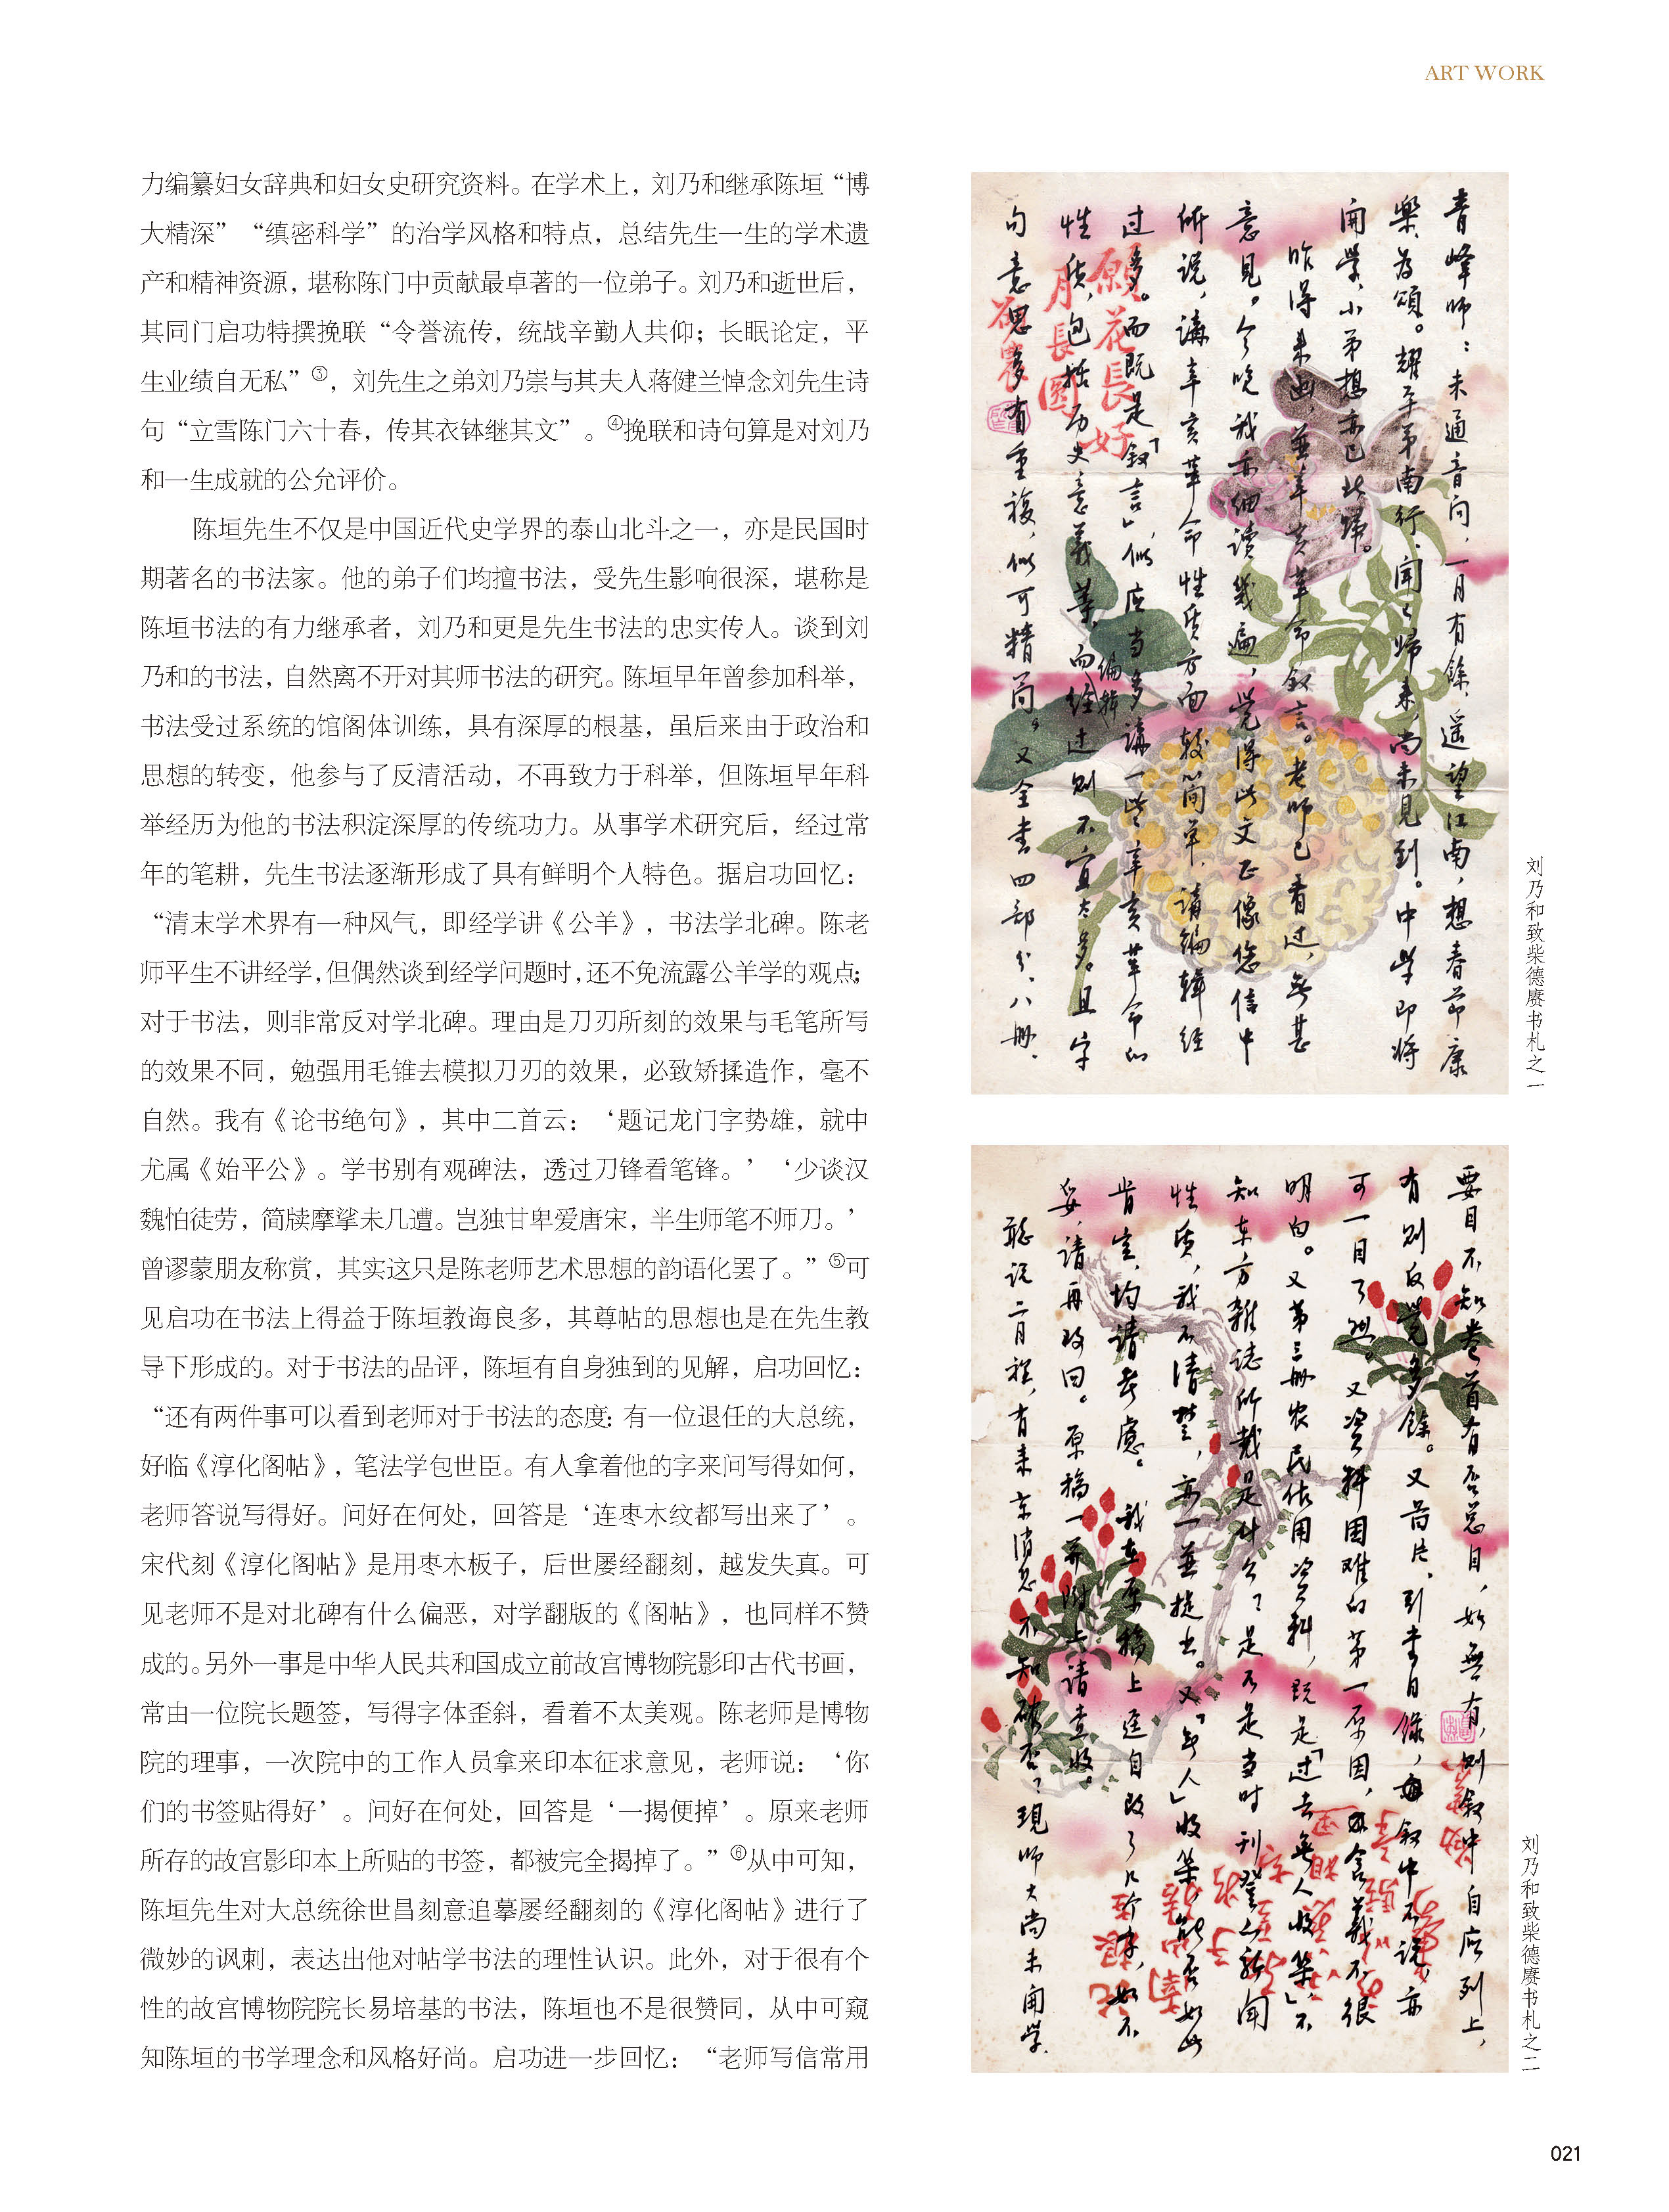 ART WORK
力编纂妇女辞典和妇女史研究资料。在学术上，刘乃和继承陈垣“博
大精深”“缜密科学”的治学风格和特点，总结先生一生的学术遗
产和精神资源，堪称陈门中贡献最卓著的一位弟子。刘乃和逝世后，
其同门启功特撰挽联“令誉流传，统战辛勤人共仰；长眠论定，平
生业绩自无私”③，刘先生之弟刘乃崇与其夫人蒋健兰悼念刘先生诗
句“立雪陈门六十春，传其衣钵继其文”。④挽联和诗句算是对刘乃
和一生成就的公允评价。
陈垣先生不仅是中国近代史学界的泰山北斗之一，亦是民国时
期著名的书法家。他的弟子们均擅书法，受先生影响很深，堪称是
陈垣书法的有力继承者，刘乃和更是先生书法的忠实传人。谈到刘
乃和的书法，自然离不开对其师书法的研究。陈垣早年曾参加科举，
书法受过系统的馆阁体训练，具有深厚的根基，虽后来由于政治和
思想的转变，他参与了反清活动，不再致力于科举，但陈垣早年科
举经历为他的书法积淀深厚的传统功力。从事学术研究后，经过常
年的笔耕，先生书法逐渐形成了具有鲜明个人特色。据启功回忆：
“清末学术界有一种风气，即经学讲《公羊》，书法学北碑。陈老
师平生不讲经学，但偶然谈到经学问题时，还不免流露公羊学的观点；
对于书法，则非常反对学北碑。理由是刀刃所刻的效果与毛笔所写
的效果不同，勉强用毛锥去模拟刀刃的效果，必致矫揉造作，毫不
自然。我有《论书绝句》，其中二首云：‘题记龙门字势雄，就中
尤属《始平公》。学书别有观碑法，透过刀锋看笔锋。’‘少谈汉
魏怕徒劳，简牍摩挲未几遭。岂独甘卑爱唐宋，半生师笔不师刀。’
曾谬蒙朋友称赏，其实这只是陈老师艺术思想的韵语化罢了。”⑤可
见启功在书法上得益于陈垣教诲良多，其尊帖的思想也是在先生教
导下形成的。对于书法的品评，陈垣有自身独到的见解，启功回忆：
“还有两件事可以看到老师对于书法的态度：有一位退任的大总统，
好临《淳化阁帖》，笔法学包世臣。有人拿着他的字来问写得如何，
老师答说写得好。问好在何处，回答是‘连枣木纹都写出来了’。
宋代刻《淳化阁帖》是用枣木板子，后世屡经翻刻，越发失真。可
见老师不是对北碑有什么偏恶，对学翻版的《阁帖》，也同样不赞
成的。另外一事是中华人民共和国成立前故宫博物院影印古代书画，
常由一位院长题签，写得字体歪斜，看着不太美观。陈老师是博物
院的理事，一次院中的工作人员拿来印本征求意见，老师说：‘你
们的书签贴得好’。问好在何处，回答是‘一揭便掉’。原来老师
所存的故宫影印本上所贴的书签，都被完全揭掉了。”⑥从中可知，
陈垣先生对大总统徐世昌刻意追摹屡经翻刻的《淳化阁帖》进行了
微妙的讽刺，表达出他对帖学书法的理性认识。此外，对于很有个
性的故宫博物院院长易培基的书法，陈垣也不是很赞同，从中可窥
知陈垣的书学理念和风格好尚。启功进一步回忆：“老师写信常用
青峰师：未通音问，一月有馀，遥望江南，想春节康
樂为頌。耀平弟南行，闻已归来，尚未见到。中学即将
開学，小弟想亦已北归。
昨得来函，并辛亥革命叙言。老师已看过，無甚
意见。今晚我亦细读几遍，觉得此文正像您信中
所说，講辛亥革命性质方面较簡单，講编辑经
过多。而既是「叙言」，似应当多講一些辛亥革命的
性质，包括历史意義等，而编辑经过则不宜太多。且字
句意思多有重複，似可精简。又全书四部分、八册、
愿花長好
月長圆
刘乃和致柴德赓书札之一
要目不知卷首有否总目，如無有，则叙中自应列上，
有则反觉多餘。又图片、引书目録，叙中不说，亦
可一目了然。又资料困难的第一原因，含義不很
明白。又第三册农民依用资料，既是「过去無人收集」，不
知东方雜誌所载是什么？是否是当时刊登之新闻
性质，我不清楚，亦一并提出。又「無人」收集，能否如此
肯定，均请考慮。我在原稿上迳自改了几个字，如不
妥，请再改回。原稿一并附上，请查收。
聽说二月程，有来京消息，不知确否？現师大尚未開学。
刘乃和致柴德赓书札之二
021